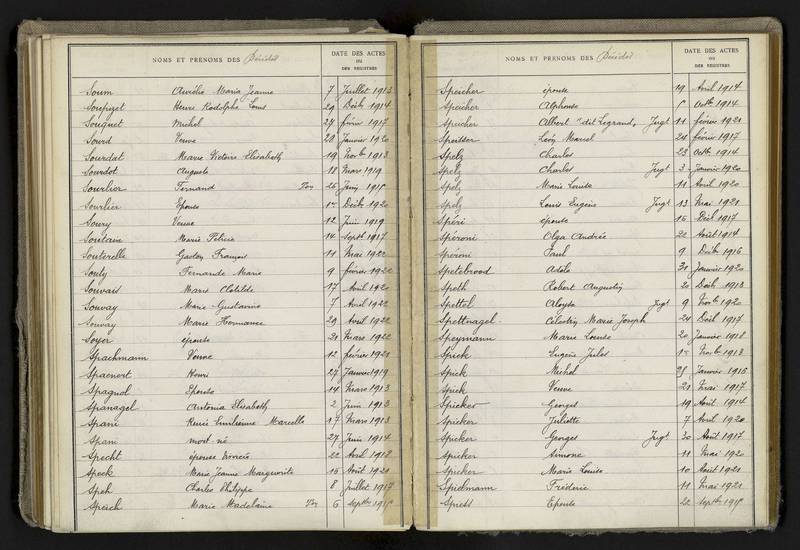 NOMS ET PRENOMS DES Décédés
DATE DES ACTES
OU
DES REGISTRES
Soum Aurélie Maria Jeanne 7 Juillet 1913
Soupiget Henri Rodolphe Louis 29 Déc 1914
Souquet Michel 27 février 1917
Sourd Veuve 28 Janvier 1920
Sourdat Marie Victoire Elisabeth 19 Nov 1913
Sourdot Auguste 18 Mars 1919
Sourlier Fernand 26 Juin
Sourlier Epouse Déc 1920
Soury Veuve 12 Juin 1919
Soutaire Marie 14 Sept 1917
Souterelle Gaston François 11 Mai 1922
Souty Fernande Marie 9 février 1922
Souvais Marie Clotilde 17 Avril 1920
Souvay Marie Gustavine 7 Avril 1922
Souvay Marie Hermance 29 Avril 1922
Soyer épouse 21 Mars 1922
Spachmann Veuve 12 février 1920
Spaenert Henri 27 Janvier 1919
Spagnol Epouse 14 Mars 1913
Spanagel Antonia Elisabeth 2 Juin 1913
Spani Renée Emilienne Marcelle 17 Mars 1913
Spani mort-né 27 Juin 1914
Specht épouse 22 Avril 1918
Speck Marie Jeanne Marguerite 16 Août 1920
Speh Charles Philippe 8 Juillet 1917
Speich Marie Madelaine 6 Septbre
NOMS ET PRENOMS DES Décédés
DATE DES ACTES
OU
DES REGISTRES
Speicher épouse 19 Avril 1914
Speicher Alphonse Octb 1914
Speicher Albert "dit Legrand" Jugt 11 février 1921
Speitser Léon Marcel 21 février 1917
Spelz Charles 23 Octb 1914
Spelz Charles Jugt 3 Janvier 1920
Spelz Marie Louise 11 Avril 1920
Spelz Louis Eugène Jugt 13 Mai 1921
Spéri épouse 16 Déc 1917
Spéroni Olga Andrée 22 Août 1914
Spéroni Paul 9 Déc 1916
Spetebrood Adèle 31 Janvier 1920
Speth Robert Augustin 20 Déc 1913
Spettel Aloyse Jugt 9 Nov 1920
Spettnagel Célestin Marie Joseph 24 Déc 1917
Speymann Marie Louise 20 Janvier 1918
Spick Eugène Jules Nov 1913
Spick Michel Janvier 1916
Spick Veuve 21 Mai 1917
Spicker Georges 19 Août 1914
Spicker Juliette 7 Avril 1920
Spicker Georges Jugt 30 Août 1917
Spicker Simone 11 Mai 1920
Spicker Marie Louise 10 Août 1921
Spidmann Frédéric 11 Mai 1921
Spiess Epouse 22 Septbre